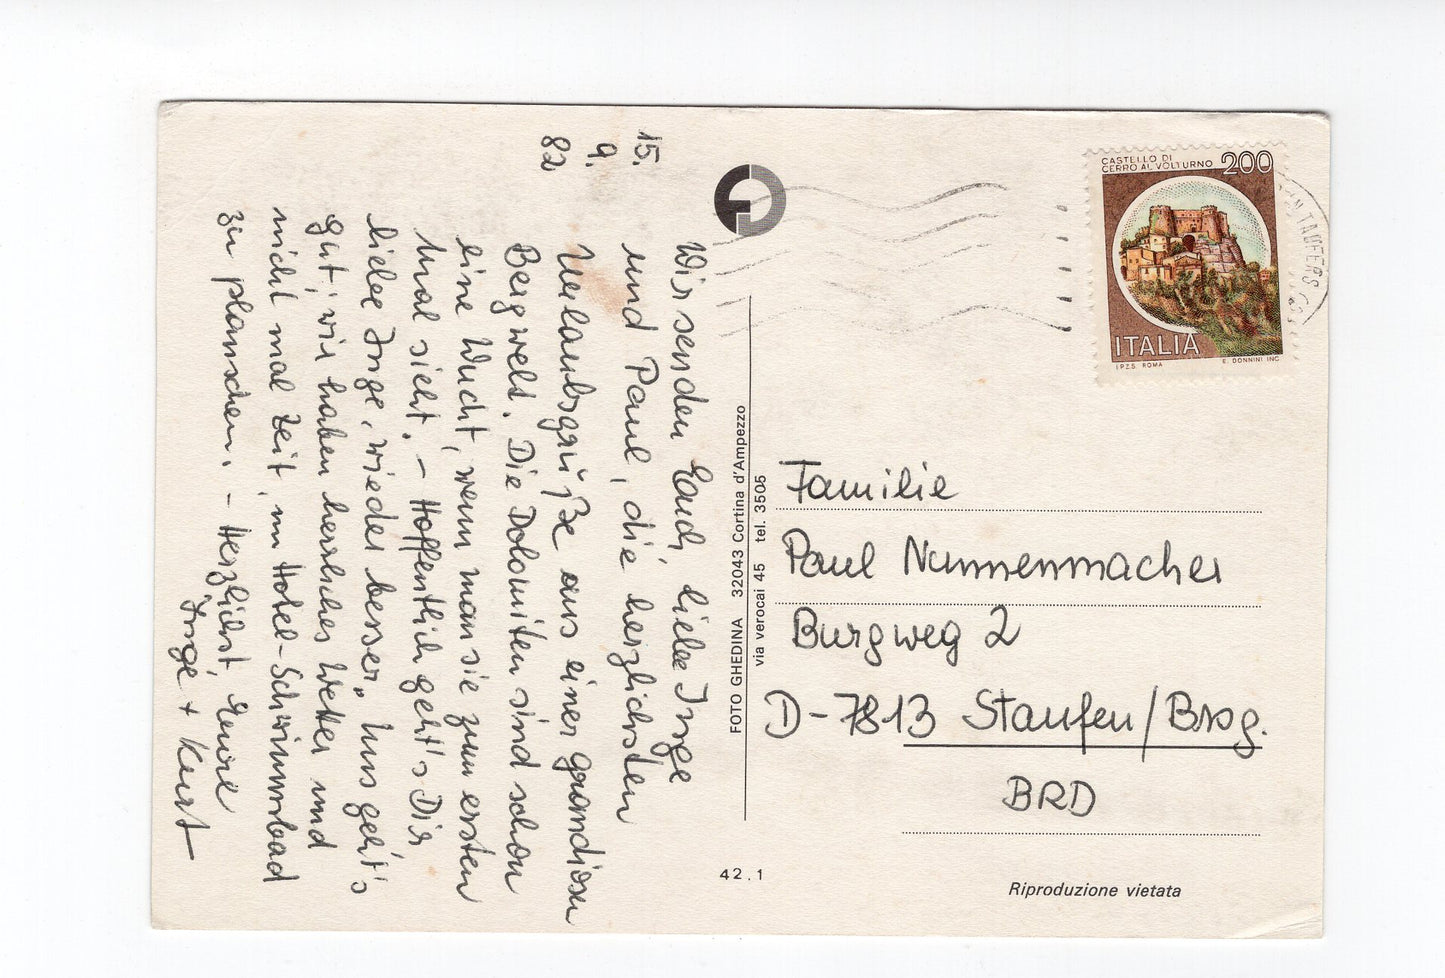 15.
9.
82
Wir senden Euch, liebe Inge
und Paul, die herzlichsten
Urlaubsgrüße aus einer grandiosen
Bergwelt. Die Dolomiten sind schon
eine Wucht, wenn man sie zum ersten
Mal sieht. – Hoffentlich geht's Dir
liebe Inge, wieder besser. Uns geht's
gut, wir haben herrliches Wetter und
nicht mal Zeit, im Hotel-Schwimmbad
zu planschen. – Herzlichst, Eure
Inge + Kurt
FOTO GHEDINA 32043 Cortina d'Ampezzo
via verocai 45 tel. 3505
42.1
CASTELLO DI
CERRO AL VOLTURNO 200
ITALIA
I.P.Z.S. ROMA E. DONNINI INC
TAUFERS
Familie
Paul Nunnenmacher
Burgweg 2
D-7813 Staufen/Brsg.
BRD
Riproduzione vietata